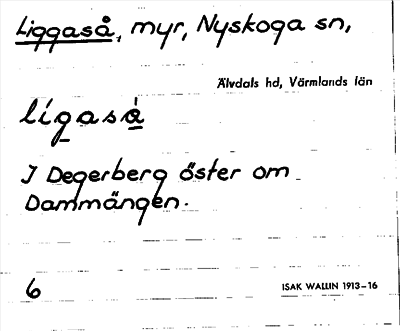 Liggaså, myr, Nyskoga sn,
Älvdals hd, Värmlands län
lígaså̀
I Degerberg öster om
Dammängen.
6
ISAK WALLIN 1913-16